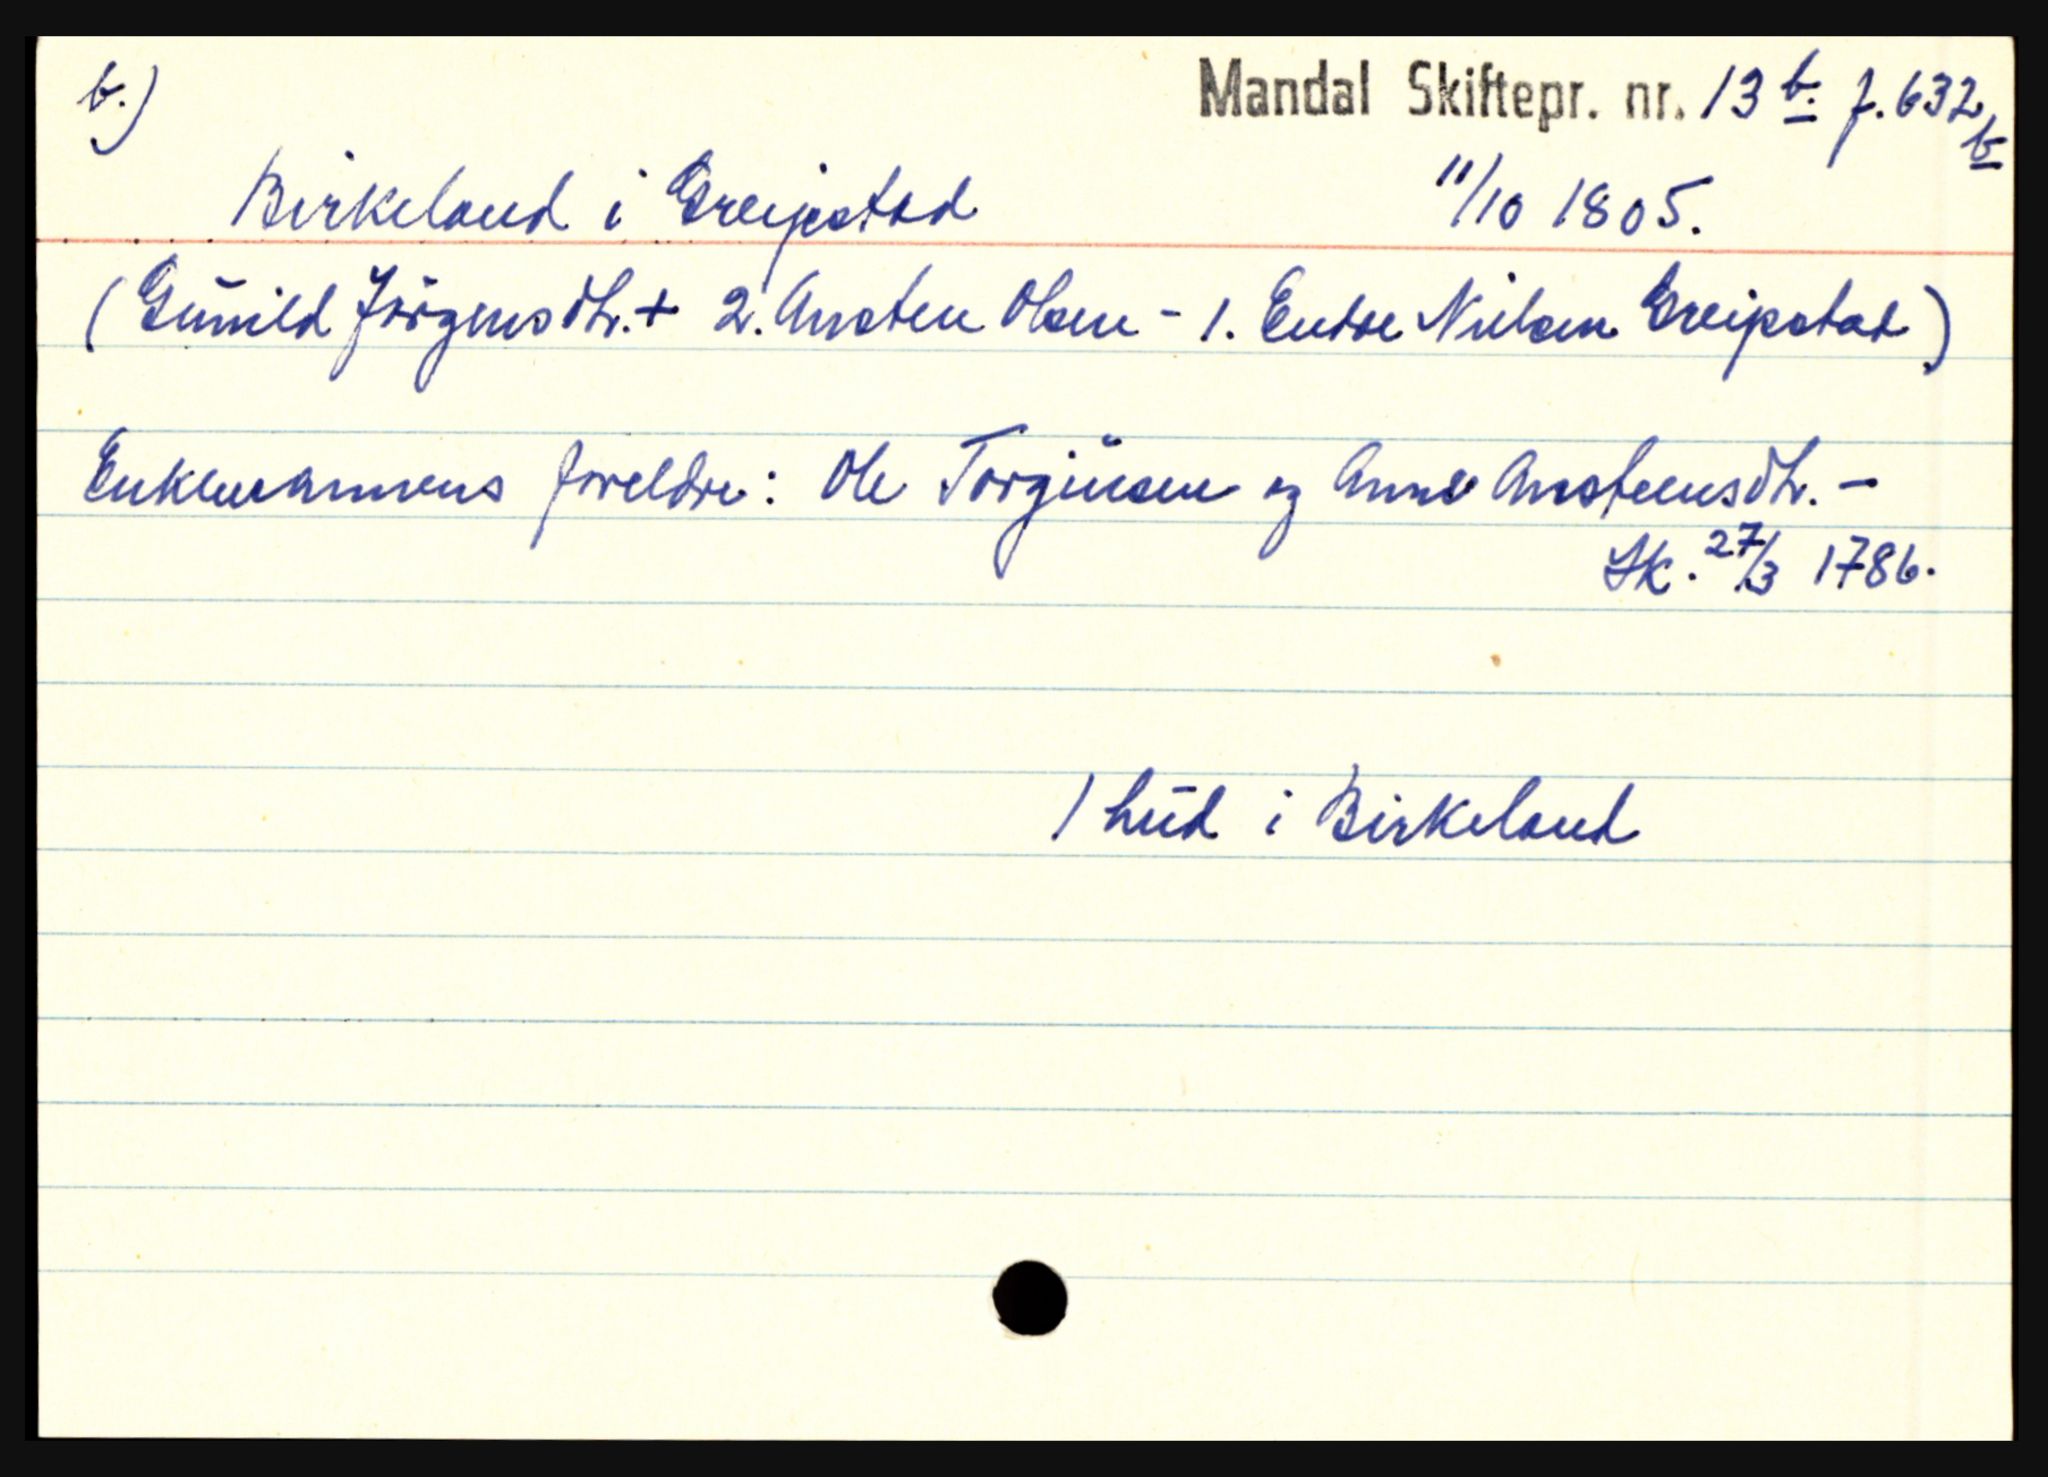 b.)
Mandal Skiftepr. nr. 13 b. f. 632 b
Birkeland i Greipstad 11/10 1805.
(Gunild Jörgensdtr. + 2. Ansten Olsen - 1. Endre Nielsen Greipstad)
Enkemannens foreldre: Ole Torgiusen og Anne Anstensdtr. -
Sk. 27/3 1786.
1 hud i Birkeland